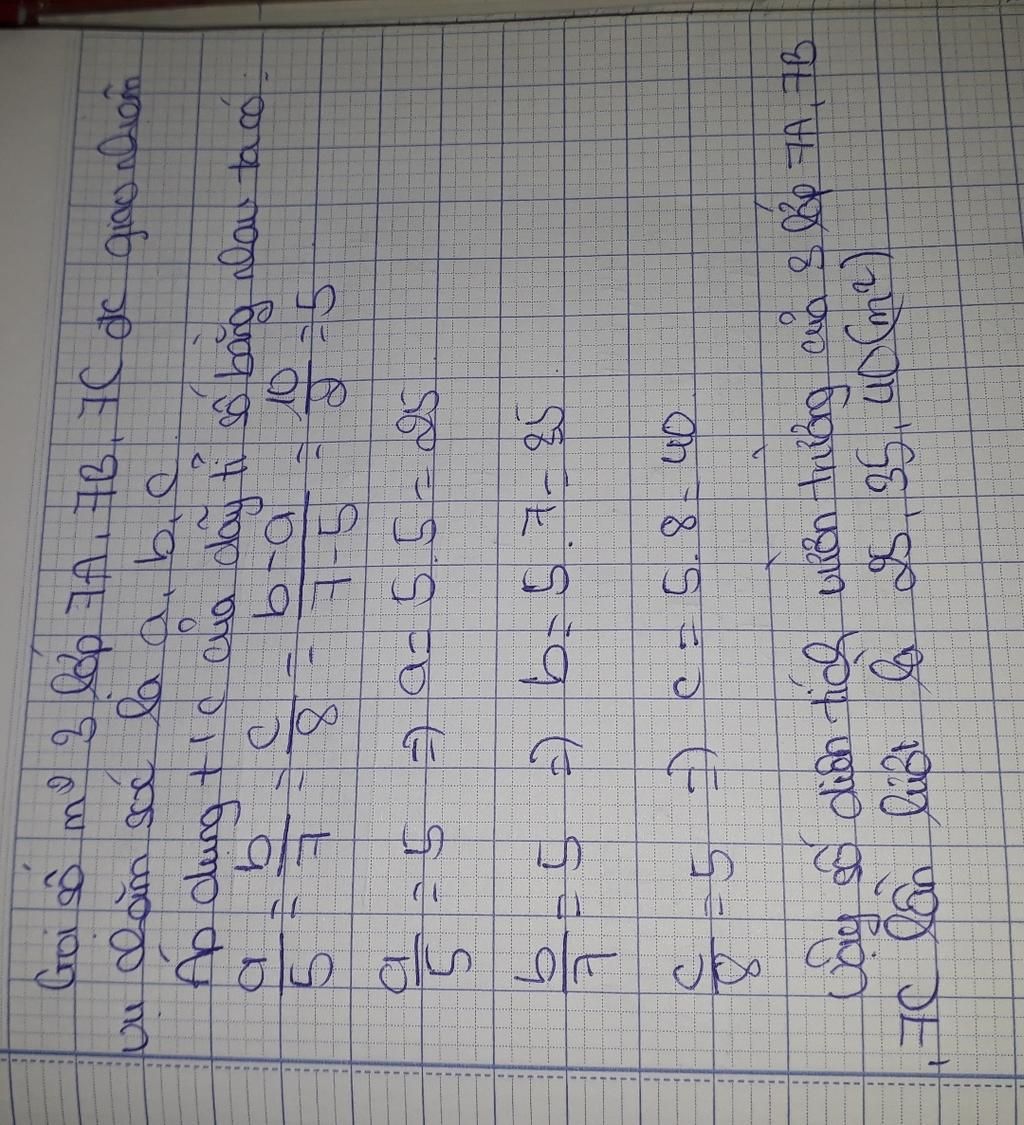 Gọi số m² 3 lớp 7A, 7B, 7C đc giao nhiệm
vụ chăm sóc là a, b, c
Áp dụng t/c của dãy tỉ số bằng nhau ta có:
a/5 = b/7 = c/8 = b-a/7-5 = 10/2 = 5
a/5 = 5 => a = 5.5 = 25
b/7 = 5 => b = 5.7 = 35
c/8 = 5 => c = 5.8 = 40
Vậy số diện tích vườn trường của 3 lớp 7A, 7B
, 7C lần lượt là 25, 35, 40(m²)